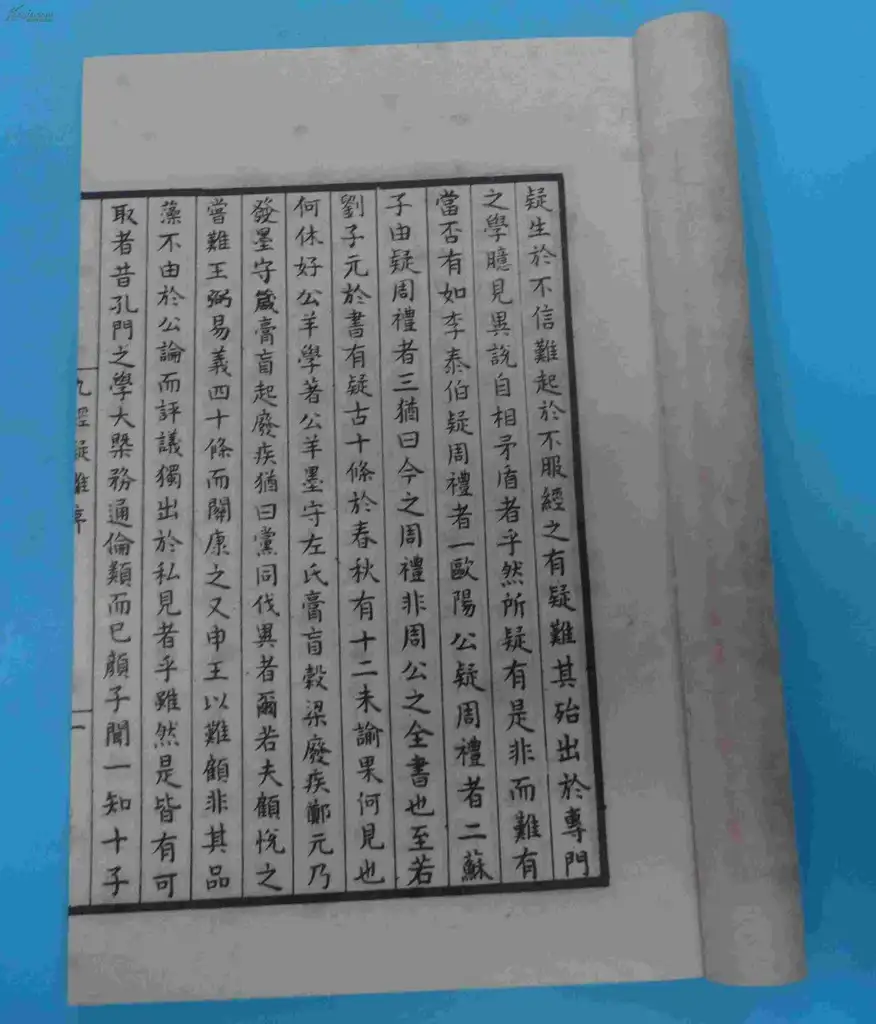 疑生於不信難起於不服經之有疑難其殆出於專門
之學臆見異說自相矛盾者乎然所疑有是非而難有
當否有如李泰伯疑周禮者一歐陽公疑周禮者二蘇
子由疑周禮者三猶曰今之周禮非周公之全書也至若
劉子元於書有疑古十條於春秋有十二未諭果何見也
何休好公羊學著公羊墨守左氏膏肓穀梁廢疾鄭元乃
發墨守箴膏肓起廢疾猶曰黨同伐異者爾若夫顧悅之
嘗難王弼易義四十條而關康之又申王以難顧非其品
藻不由於公論而評議獨出於私見者乎雖然是皆有可
取者昔孔門之學大槩務通倫類而已顏子聞一知十子
九經疑難序
一